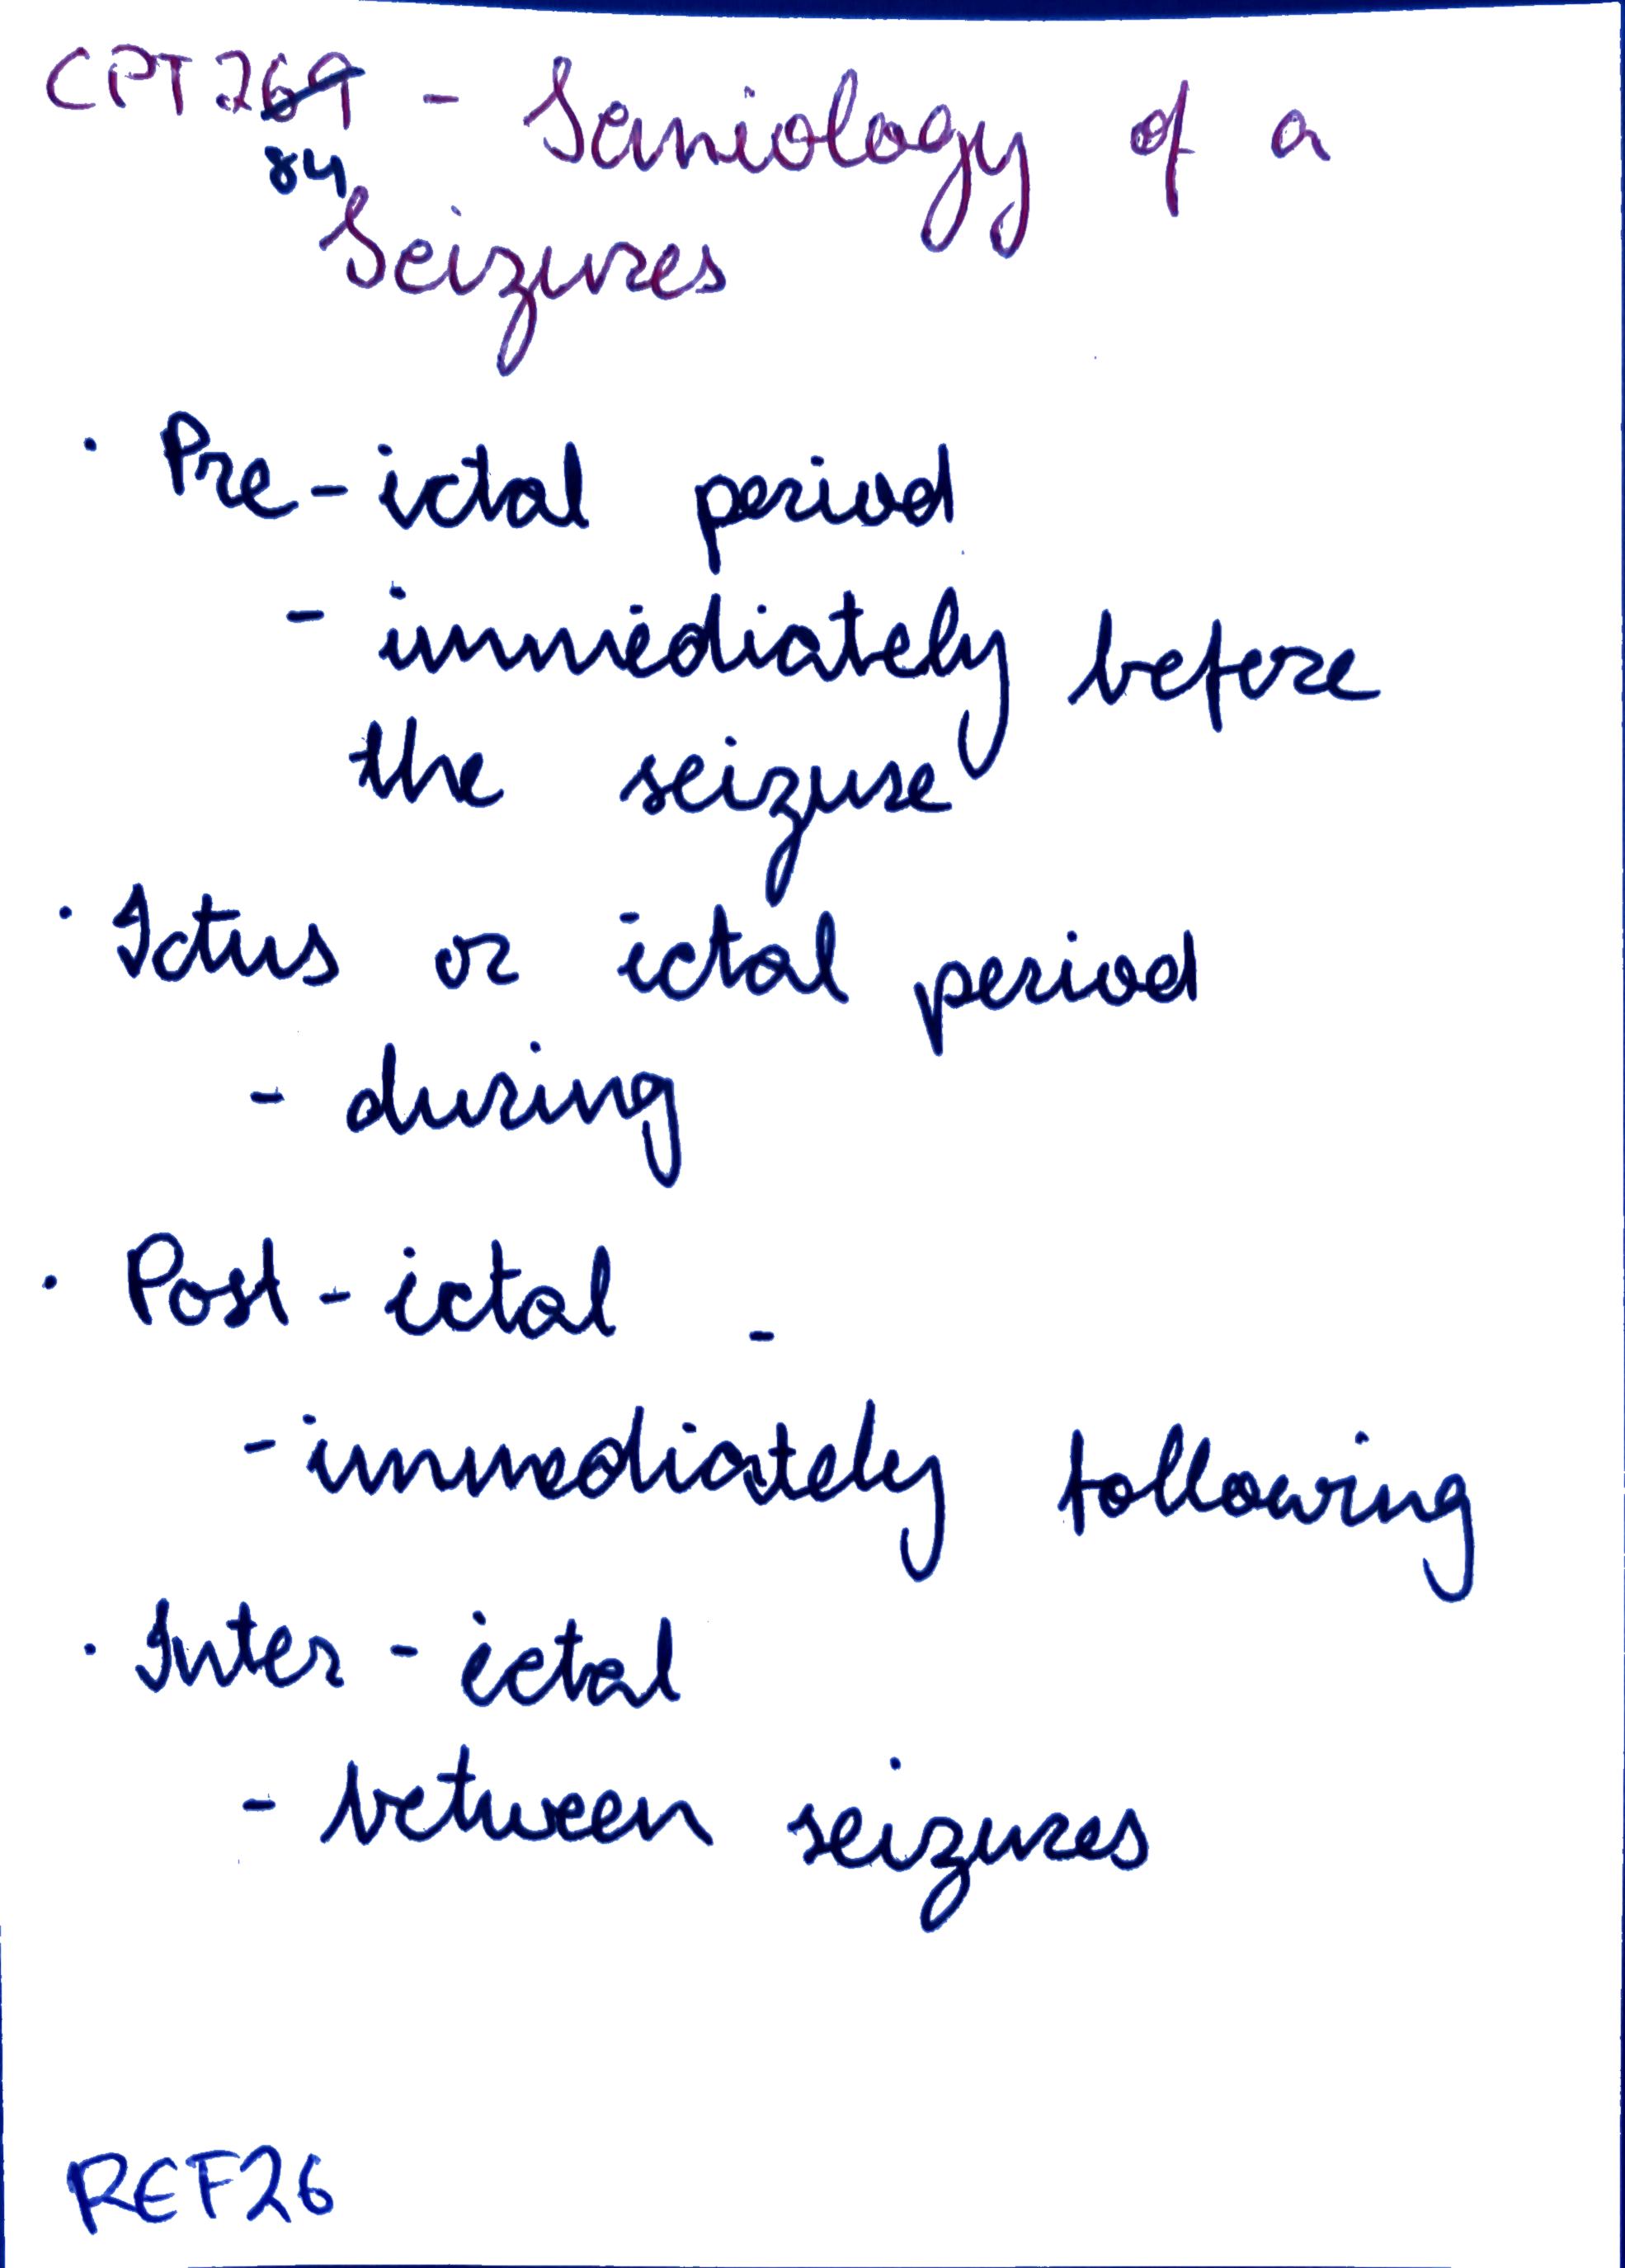 CPT269 - Semiology of a
84
Seizures
· Pre-ictal period
- immediately before
the seizure
· Ictus or ictal period
- during
· Post-ictal -
- immediately following
· Inter-ictal
- between seizures
REF26